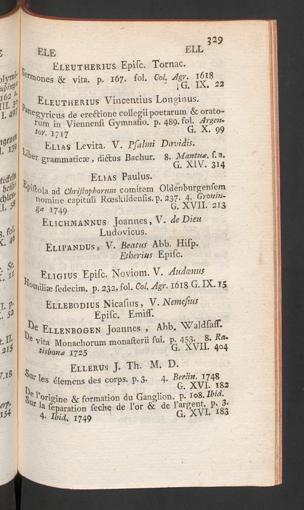 329
ELE ELL
ELEUTHERIUS Episc. Tornac.
Sermones & vita. p. 167. fol. Col. Agr. 1618
G. IX. 22
ELEUTHERIUS Vincentius Longinus.
Panegyricus de erectione collegii poetarum & orato-
rum in Viennensi Gymnasio. p. 489. fol. Argen-
tor. 1717 G. X. 99
ELIAS Levita. V. Psalmi Davidis.
Liber grammaticæ, dictus Bachur. 8. Mantuæ. s. a.
G. XIV. 314
ELIAS Paulus.
Epistola ad Christophorum comitem Oldenburgensem
nomine capituli Rœskildensis. p. 237. 4. Gronin-
gæ 1749 G. XVII. 213
ELICHMANNUS Joannes, V. de Dieu
Ludovicus.
ELIPANDUS, V. Beatus Abb. Hisp.
Etherius Episc.
ELIGIUS Episc. Noviom. V. Audœnus
Homiliæ sedecim. p. 232. fol. Col. Agr. 1618 G. IX. 15
ELLEBODIUS Nicasius, V. Nemesius
Episc. Emiss.
De ELLENBOGEN Joannes, Abb. Waldsass.
De vita Monachorum monasterii sui. p. 453. 8. Ra-
tisbonæ 1725 G. XVII. 404
ELLERUS J. Th. M. D.
Sur les élemens des corps. p. 3. 4. Berlin. 1748
G. XVI. 182
De l'origine & formation du Ganglion. p. 108. Ibid.
Sur la separation seche de l'or & de l'argent. p. 3.
4. Ibid. 1749 G. XVI. 183